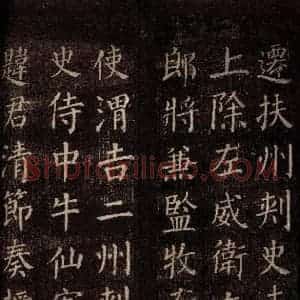 遷扶州刾史
上除左威衛
郎將兼監牧
使渭吉二州刾
史侍中牛仙
韙君清節奏
ShofaVillas.COM